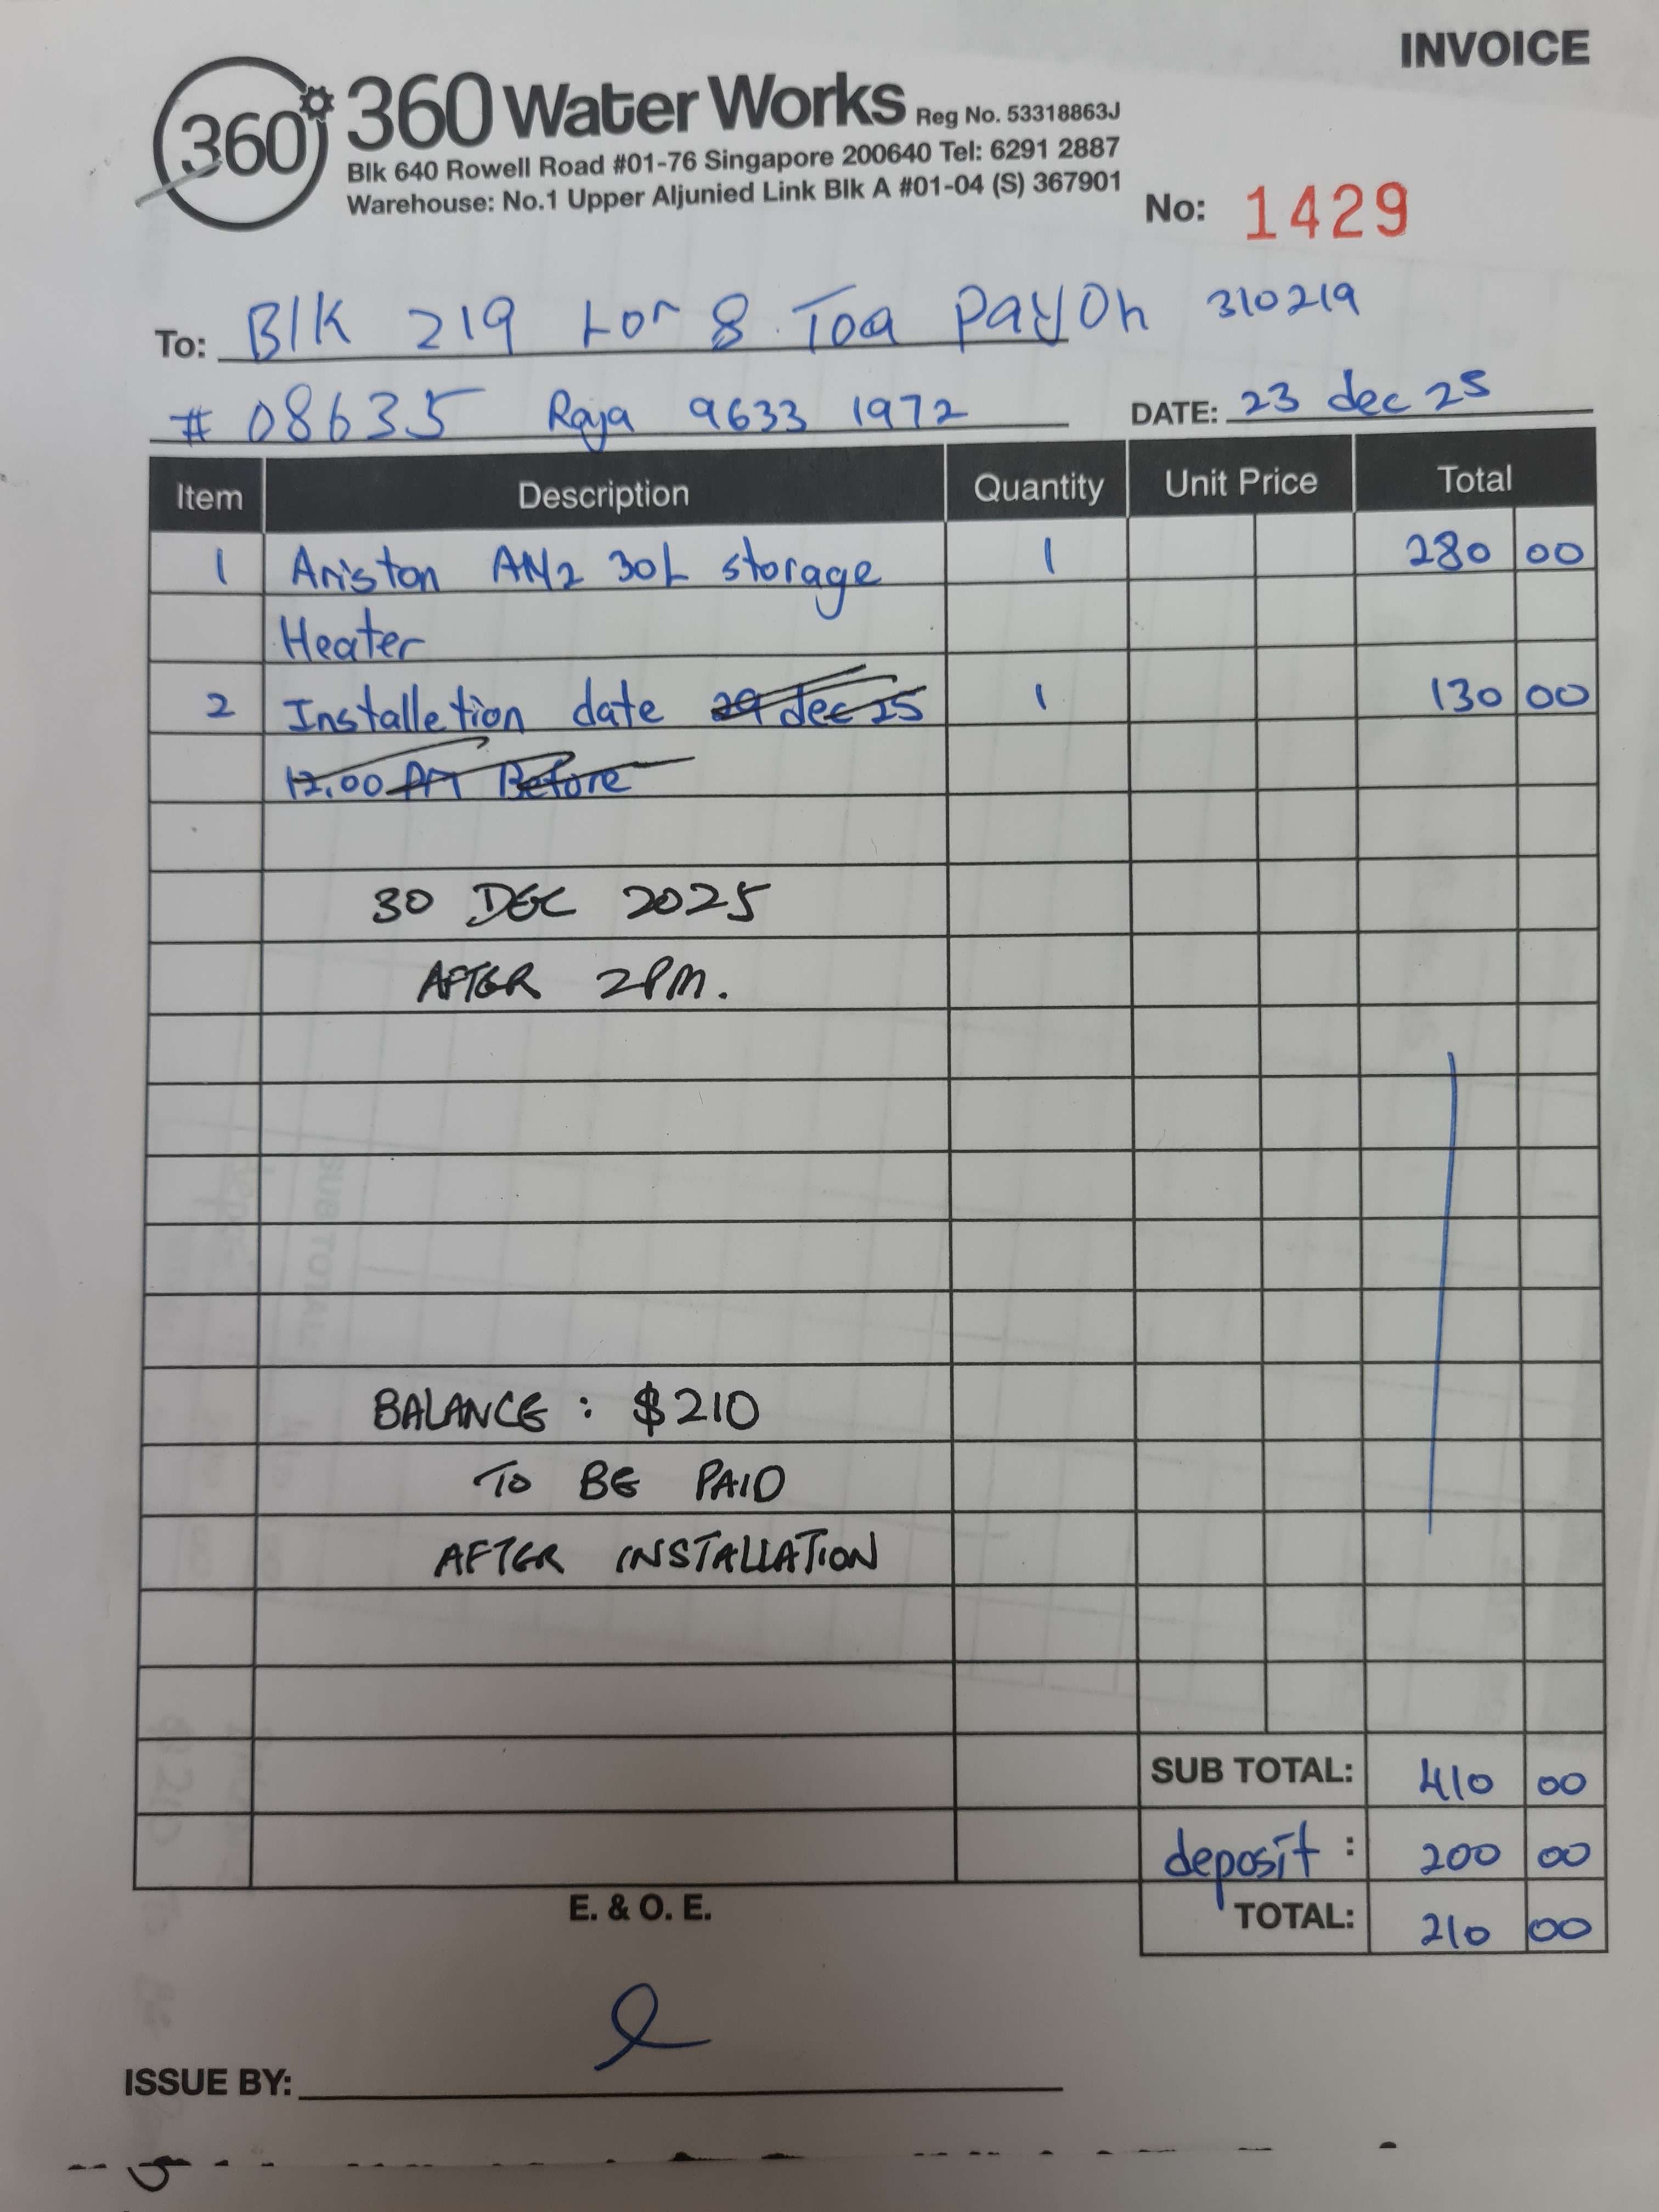 INVOICE
360
360 Water Works Reg No. 53318863J
Blk 640 Rowell Road #01-76 Singapore 200640 Tel: 6291 2887
Warehouse: No.1 Upper Aljunied Link Blk A #01-04 (S) 367901
No: 1429
To: Blk 219 Lor 8 Toa Payoh 310219
# 08635 Raja 9633 1972 DATE: 23 dec 25
Item Description Quantity Unit Price Total
1 Ariston AN2 30L storage 1 280 00
Heater
2 Installetion date 29 dec 25 1 130 00
12.00 PM Before
30 DEC 2025
AFTER 2PM.
BALANCE : $210
TO BE PAID
AFTER INSTALLATION
SUB TOTAL: 410 00
deposit : 200 00
E. & O. E. TOTAL: 210 00
ISSUE BY: